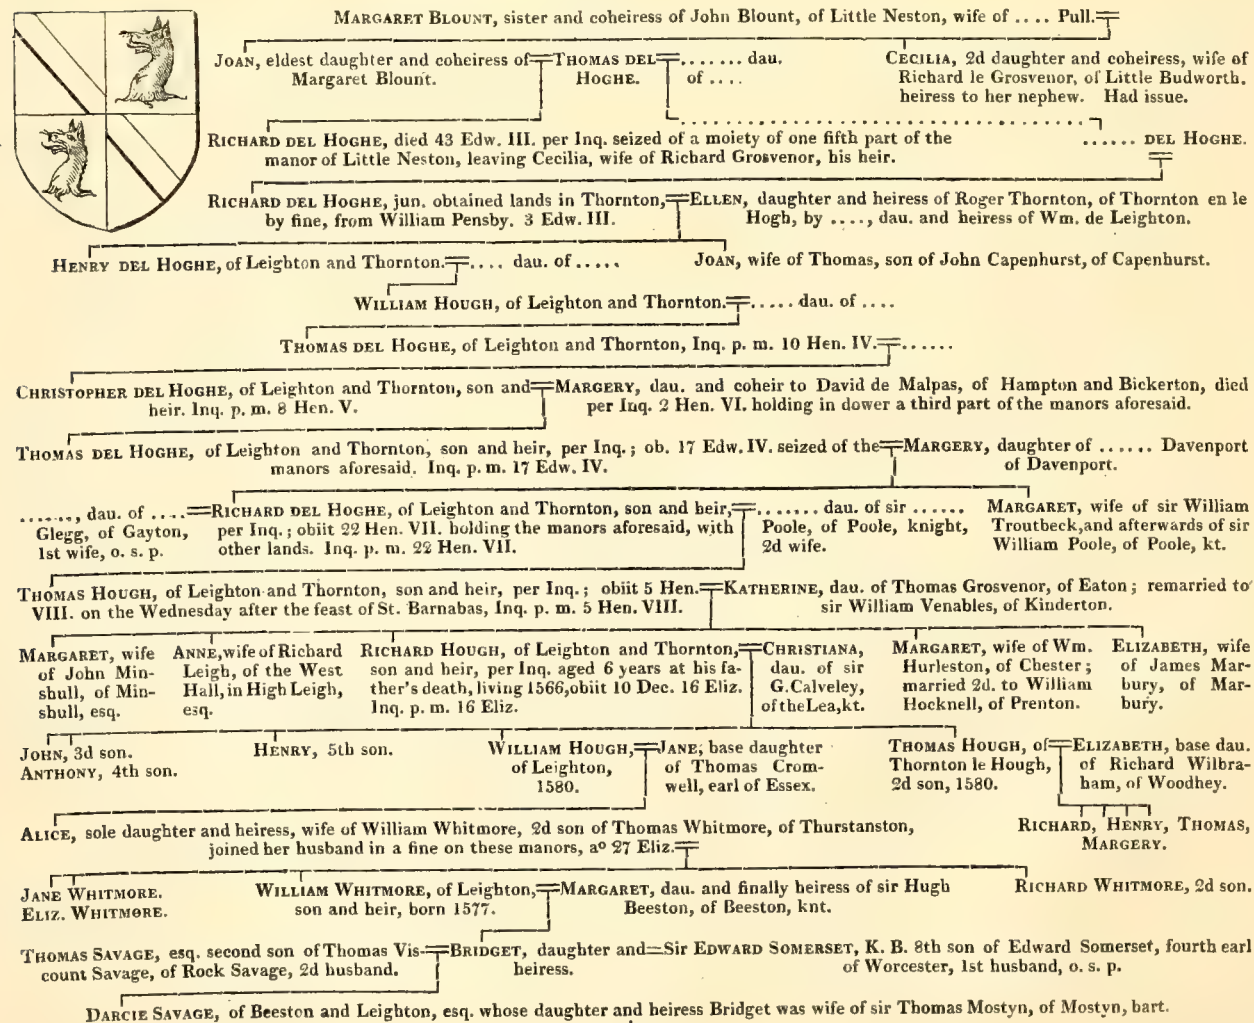 MARGARET BLOUNT, sister and coheiress of John Blount, of Little Neston, wife of .... Pull.
JOAN, eldest daughter and coheiress of
Margaret Blount.
THOMAS DEL
HOGHE.
....... dau.
of ....
CECILIA, 2d daughter and coheiress, wife of
Richard le Grosvenor, of Little Budworth.
heiress to her nephew. Had issue.
RICHARD DEL HOGHE, died 43 Edw. III. per Inq. seized of a moiety of one fifth part of the
manor of Little Neston, leaving Cecilia, wife of Richard Grosvenor, his heir.
...... DEL HOGHE.
RICHARD DEL HOGHE, jun. obtained lands in Thornton,
by fine, from William Pensby. 3 Edw. III.
ELLEN, daughter and heiress of Roger Thornton, of Thornton en le
Hogh, by ...., dau. and heiress of Wm. de Leighton.
HENRY DEL HOGHE, of Leighton and Thornton.
.... dau. of .....
JOAN, wife of Thomas, son of John Capenhurst, of Capenhurst.
WILLIAM HOUGH, of Leighton and Thornton.
..... dau. of ....
THOMAS DEL HOGHE, of Leighton and Thornton, Inq. p. m. 10 Hen. IV.
......
CHRISTOPHER DEL HOGHE, of Leighton and Thornton, son and
heir. Inq. p. m. 8 Hen. V.
MARGERY, dau. and coheir to David de Malpas, of Hampton and Bickerton, died
per Inq. 2 Hen. VI. holding in dower a third part of the manors aforesaid.
THOMAS DEL HOGHE, of Leighton and Thornton, son and heir, per Inq.; ob. 17 Edw. IV. seized of the
manors aforesaid. Inq. p. m. 17 Edw. IV.
MARGERY, daughter of ...... Davenport
of Davenport.
......., dau. of ....
Glegg, of Gayton,
1st wife, o. s. p.
RICHARD DEL HOGHE, of Leighton and Thornton, son and heir,
per Inq.; obiit 22 Hen. VII. holding the manors aforesaid, with
other lands. Inq. p. m. 22 Hen. VII.
....... dau. of sir ......
Poole, of Poole, knight,
2d wife.
MARGARET, wife of sir William
Troutbeck, and afterwards of sir
William Poole, of Poole, kt.
THOMAS HOUGH, of Leighton and Thornton, son and heir, per Inq.; obiit 5 Hen.
VIII. on the Wednesday after the feast of St. Barnabas, Inq. p. m. 5 Hen. VIII.
KATHERINE, dau. of Thomas Grosvenor, of Eaton; remarried to
sir William Venables, of Kinderton.
MARGARET, wife
of John Min-
shull, of Min-
shull, esq.
ANNE, wife of Richard
Leigh, of the West
Hall, in High Leigh,
esq.
RICHARD HOUGH, of Leighton and Thornton,
son and heir, per Inq. aged 6 years at his fa-
ther's death, living 1566, obiit 10 Dec. 16 Eliz.
Inq. p. m. 16 Eliz.
CHRISTIANA,
dau. of sir
G. Calveley,
of the Lea, kt.
MARGARET, wife of Wm.
Hurleston, of Chester;
married 2d. to William
Hocknell, of Prenton.
ELIZABETH, wife
of James Mar-
bury, of Mar-
bury.
JOHN, 3d son.
ANTHONY, 4th son.
HENRY, 5th son.
WILLIAM HOUGH,
of Leighton,
1580.
JANE, base daughter
of Thomas Crom-
well, earl of Essex.
THOMAS HOUGH, of
Thornton le Hough,
2d son, 1580.
ELIZABETH, base dau.
of Richard Wilbra-
ham, of Woodhey.
ALICE, sole daughter and heiress, wife of William Whitmore, 2d son of Thomas Whitmore, of Thurstanston,
joined her husband in a fine on these manors, aº 27 Eliz.
RICHARD, HENRY, THOMAS,
MARGERY.
JANE WHITMORE.
ELIZ. WHITMORE.
WILLIAM WHITMORE, of Leighton,
son and heir, born 1577.
MARGARET, dau. and finally heiress of sir Hugh
Beeston, of Beeston, knt.
RICHARD WHITMORE, 2d son.
THOMAS SAVAGE, esq. second son of Thomas Vis-
count Savage, of Rock Savage, 2d husband.
BRIDGET, daughter and
heiress.
Sir EDWARD SOMERSET, K. B. 8th son of Edward Somerset, fourth earl
of Worcester, 1st husband, o. s. p.
DARCIE SAVAGE, of Beeston and Leighton, esq. whose daughter and heiress Bridget was wife of sir Thomas Mostyn, of Mostyn, bart.